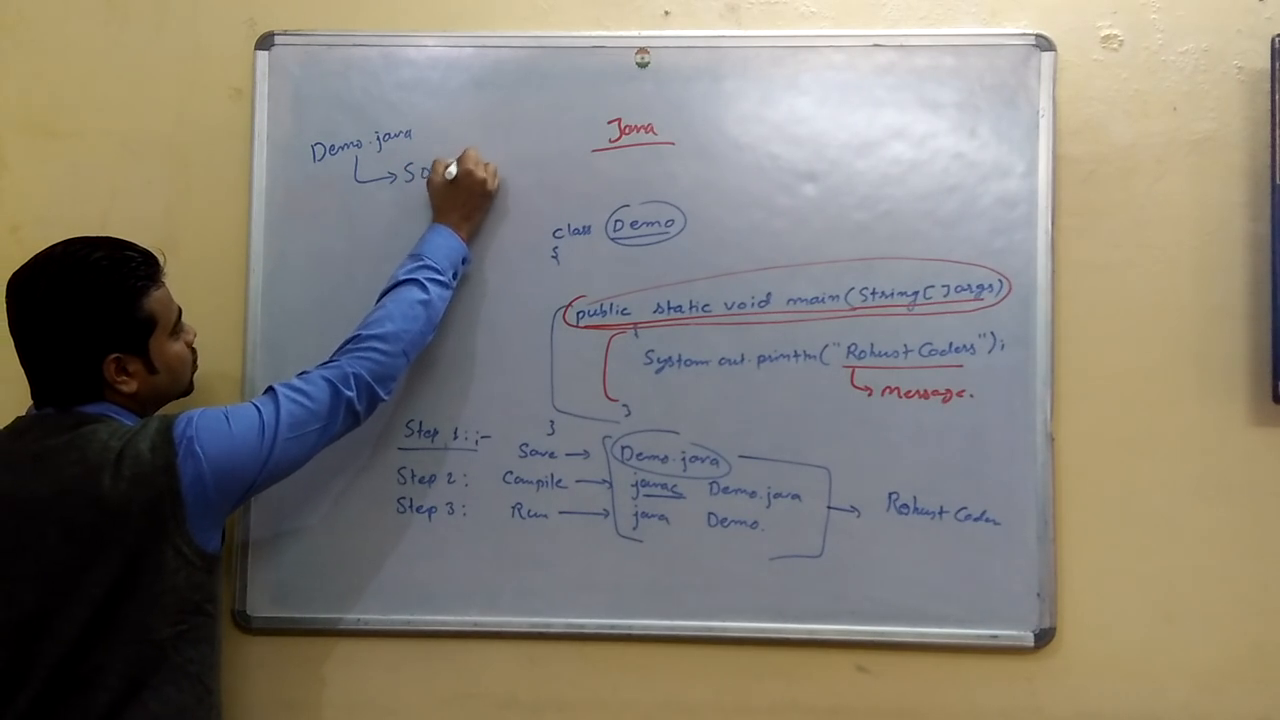 Java
Demo.java
→ So
class Demo
{
public static void main(String[]args)
{
System.out.println("Robust Coders");
→ Message.
}
}
Step 1:;- Save → Demo.java
Step 2: Compile → javac Demo.java
Step 3: Run → java Demo. → Robust Coder